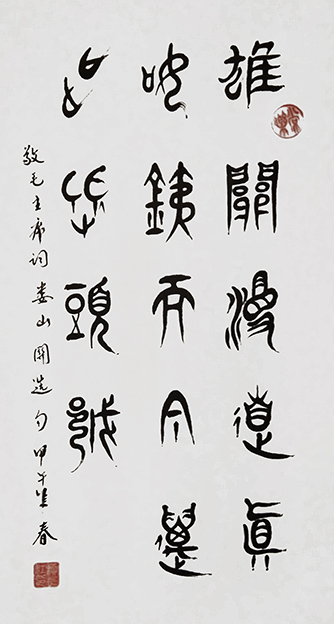 雄關漫道真
如銕而今邁
步从頭越
敬毛主席词娄山關選句甲午年春